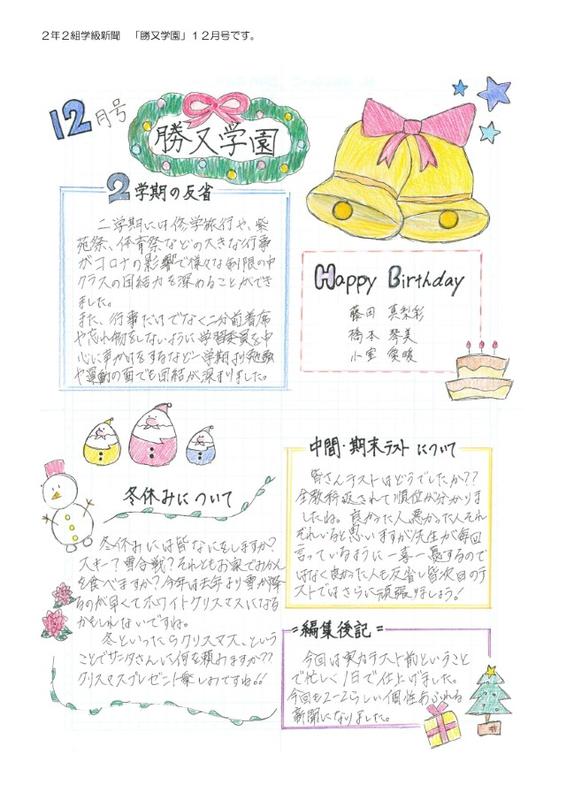 ２年２組学級新聞　「勝又学園」１２月号です。
12月号
勝又学園
2学期の反省
二学期には修学旅行や、紫
苑祭、体育祭などの大きな行事
がコロナの影響で様々な制限の中
クラスの団結力を深めることができ
ました。
また、行事だけでなく二分前着席
や忘れ物をしないように学習委員を中
心に声かけをするなど一学期より勉強
や運動の面でも団結が深まりました。
Happy Birthday
藤田 真梨彩
橋本 琴美
小室 愛暖
中間・期末テストについて
皆さんテストはどうでしたか??
全教科返されて順位が分かりま
したね。良かった人悪かった人それ
ぞれいると思いますが先生が毎回
言っているように一喜一憂するので
はなく良かった人も反省し皆次回のテ
ストではさらに頑張りましょう!
冬休みについて
冬休みには皆なにをしますか?
スキー?雪合戦?それともお家でおかん
を食べますか?今年は去年より雪が降
るのが早くてホワイトクリスマスになる
かもしれないですね。
冬といったらクリスマス、という
ことでサンタさんに何を頼みますか??
クリスマスプレゼント楽しみですね!!
=編集後記=
今回は実力テスト前ということ
で忙しく1日で仕上げました。
今回も2-2らしい個性あふれる
新聞になりました。